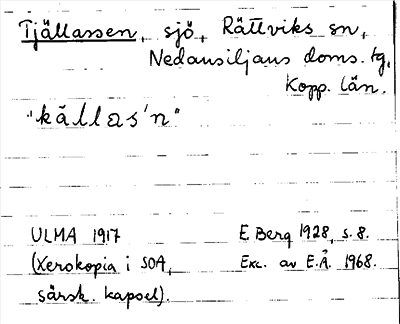 Tjällassen, sjö, Rättviks sn,
Nedansiljans doms. tg,
Kopp. län.
"kä́llas'n"
ULMA 1917 E Berg 1928, s. 8.
(Xerokopia i SOA, Exc. av E.Å. 1968.
särsk. kapsel).